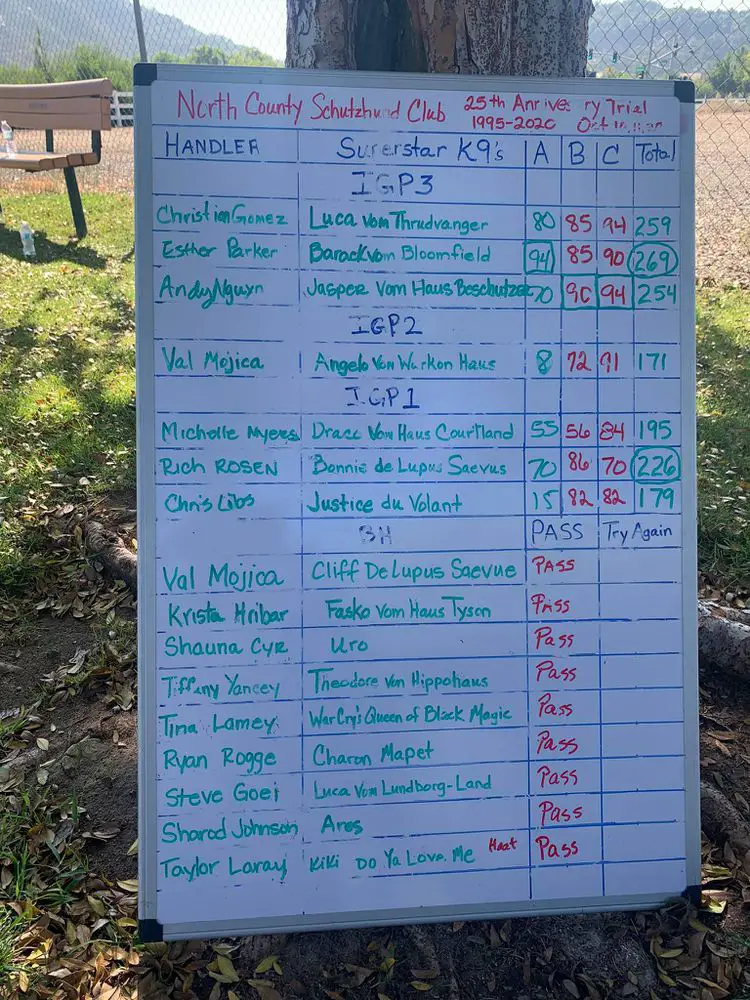 North County Schutzhund Club 25th Anniversary Trial
1995-2020 Oct
HANDLER Superstar K9's A B C Total
IGP3
Christian Gomez Luca vom Thrudvanger 80 85 94 259
Esther Parker Barack vom Bloomfield 94 85 90 269
Andy Nguyn Jasper Vom Haus Beschutzer 70 90 94 254
IGP2
Val Mojica Angelo Von Warkon Haus 8 72 91 171
IGP1
Michelle Myers Dracc Vom Haus Courtland 55 56 84 195
Rich ROSEN Bonnie de Lupus Saevus 70 86 70 226
Chris Libs Justice du Volant 15 82 82 179
BH PASS Try Again
Val Mojica Cliff De Lupus Saevue PASS
Krista Hribar Fasko Vom Haus Tyson Pass
Shauna Cyr Uro Pass
Tiffany Yancey Theodore Von Hippohaus Pass
Tina Lamey WarCry's Queen of Black Magic Pass
Ryan Rogge Charon Mapet Pass
Steve Goei Luca Vom Lundborg-Land Pass
Sharod Johnson Ares Pass
Taylor Laray KiKi Do Ya Love Me Haat Pass